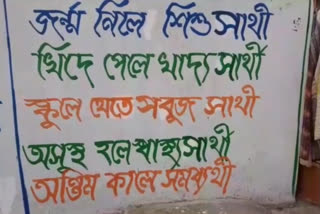 জন্ম নিলে শিশু সাথী
খিদে পেলে খাদ্য সাথী
স্কুলে যেতে সবুজ সাথী
অসুস্থ হলে স্বাস্থ্য সাথী
অন্তিম কালে সমব্যথী